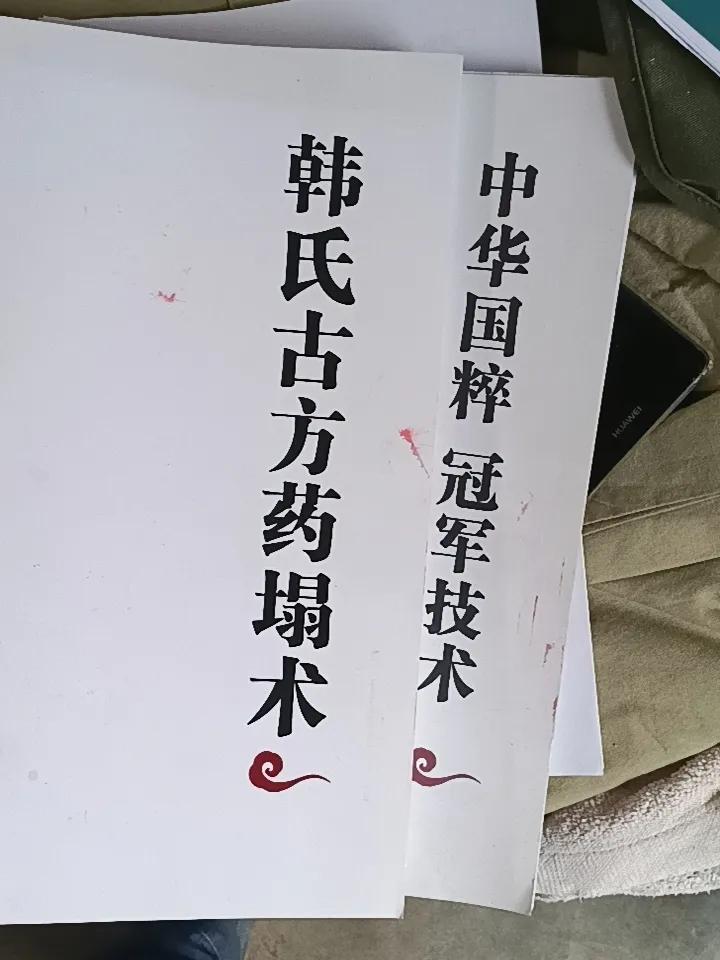 韩氏古方药塌术
中华国粹 冠军技术
HUAWEI